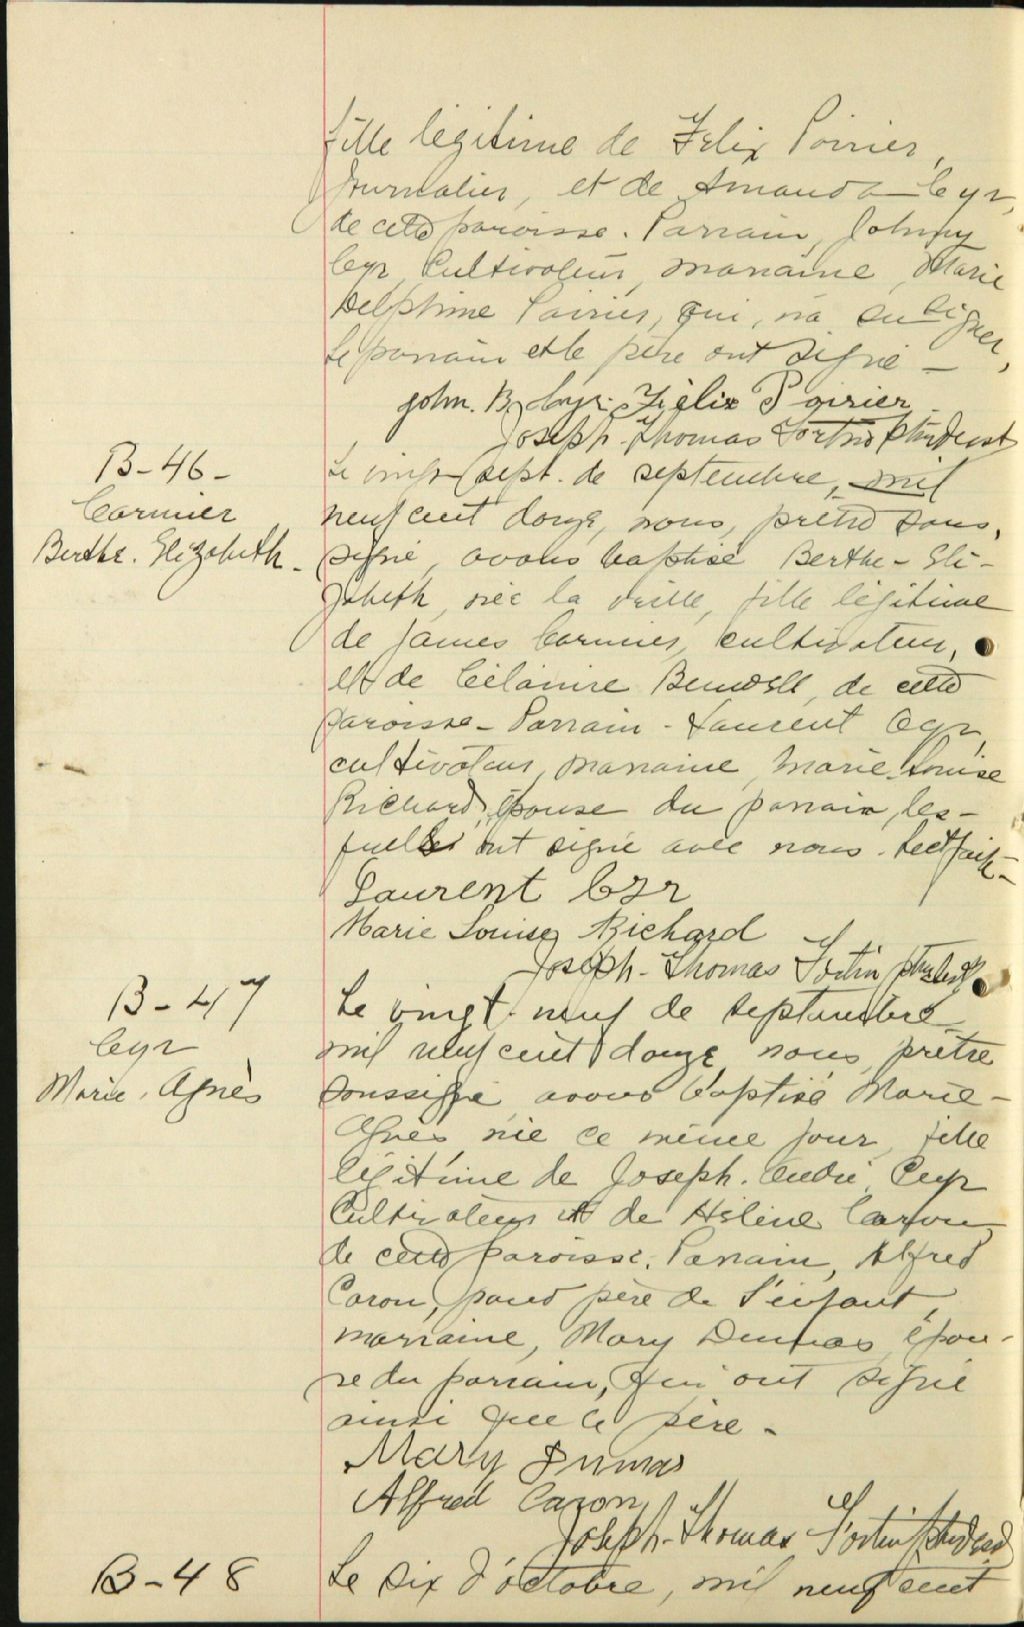 fille légitime de Felix Poirier,
journalier, et de Amanda Cyr,
de cette paroisse. Parrain, Johnny
Cyr, Cultivateur, marraine, Marie
Delphine Poirier, qui, n'a su signer,
Le parrain et le père ont signé -
John. B. Cyr. Félix Poirier
Joseph-Thomas Fortin ptre
B-46-
Cormier
Berthe. Elizabeth-
Le vingt-sept. de septembre, mil
neuf cent douze, nous, prêtre sous,
signé, avons baptisé Berthe-Eli-
zabeth, née la veille, fille légitime
de James Cormier, cultivateur,
et de Célanire de cette
paroisse- Parrain - Laurent Cyr,
cultivateur, marraine, Marie-Louise
Richard, épouse du parrain, les-
quels ont signé avec nous. Lect. faite-
Laurent Cyr
Marie Louise Richard
Joseph-Thomas Fortin ptre
B-47
Cyr
Marie. Agnès
Le vingt-neuf de septembre
mil neuf cent douze, nous prêtre
soussigné avons baptisé Marie-
Agnès, née ce même jour, fille
légitime de Joseph. André Cyr
Cultivateur et de Hélène Caron,
de cette paroisse. Parrain, Alfred
Caron, grand père de l'enfant,
marraine, Mary Dumas, épou-
se du parrain, qui ont signé
ainsi que le père-
Mary Dumas
Alfred Caron
Joseph-Thomas Fortin ptre
B-48
Le six d'octobre, mil neuf cent